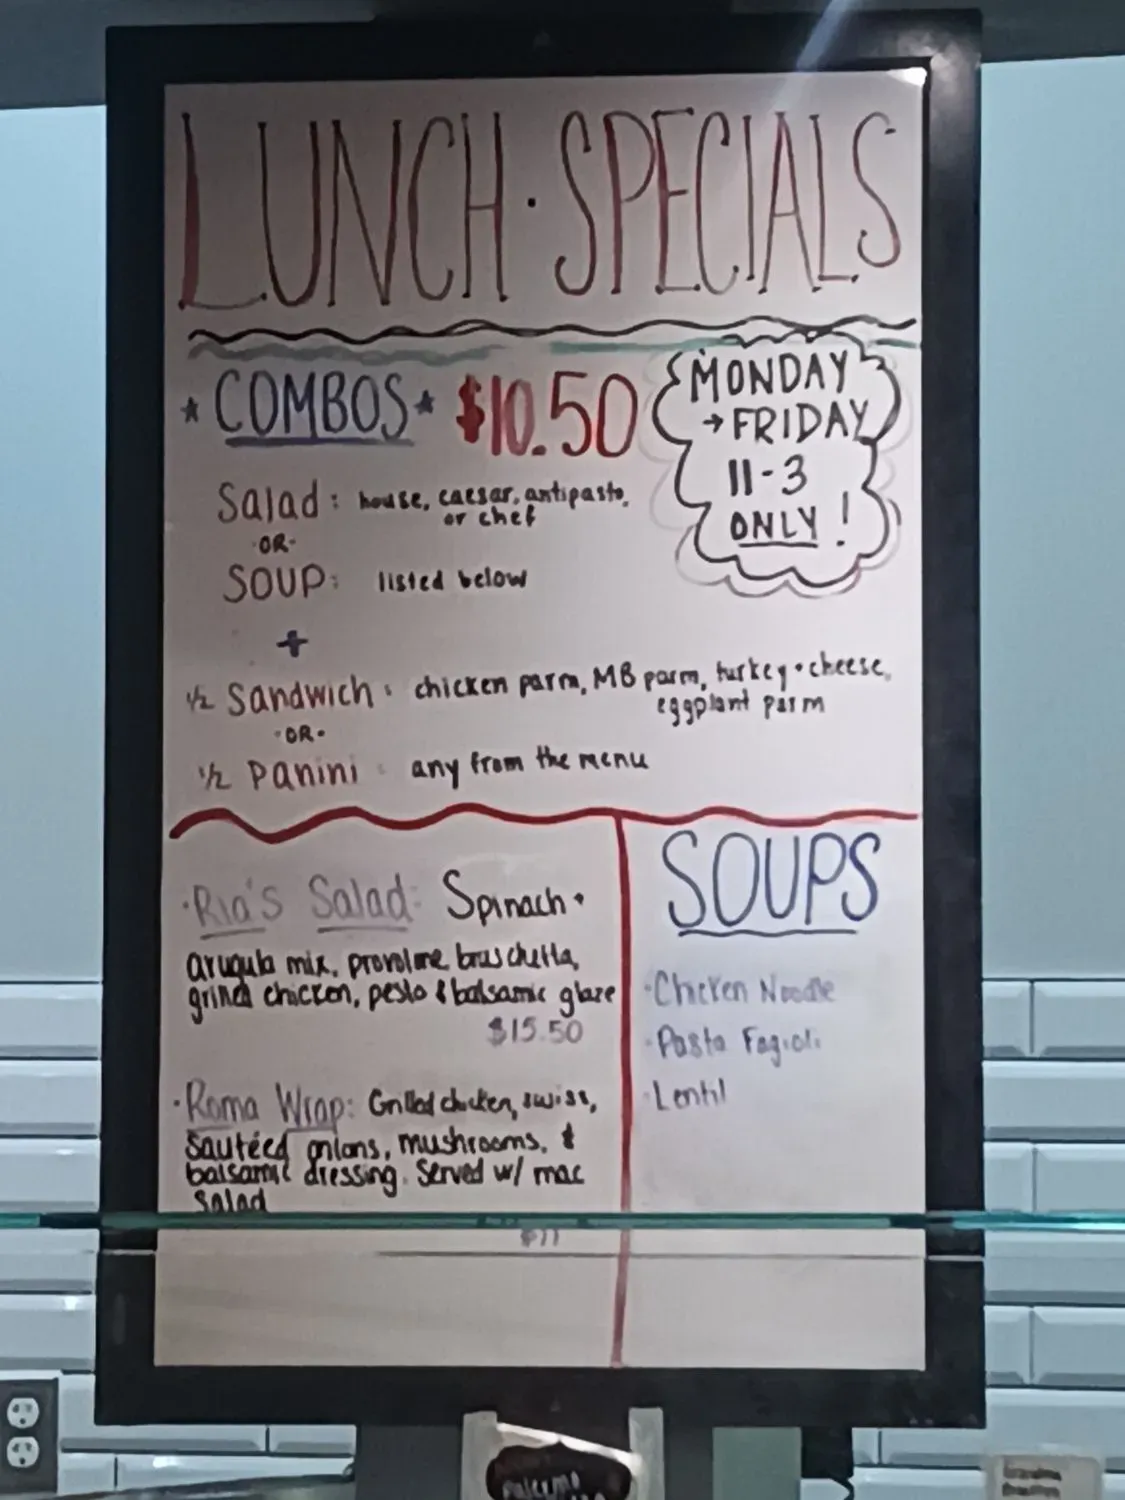 LUNCH · SPECIALS
COMBOS $10.50
MONDAY
→ FRIDAY
11-3
ONLY!
Salad: house, caesar, antipasto,
or chef
·OR·
SOUP: listed below
+
1/2 Sandwich: chicken parm, MB parm, turkey + cheese,
eggplant parm
·OR·
1/2 Panini: any from the menu
·Ria's Salad: Spinach +
arugula mix, provolone, bruschetta,
grilled chicken, pesto & balsamic glaze
$15.50
·Roma Wrap: Grilled chicken, swiss,
sautéed onions, mushrooms, &
balsamic dressing. Served w/ mac
salad
$11
SOUPS
·Chicken Noodle
·Pasta Fagioli
·Lentil
Palermo